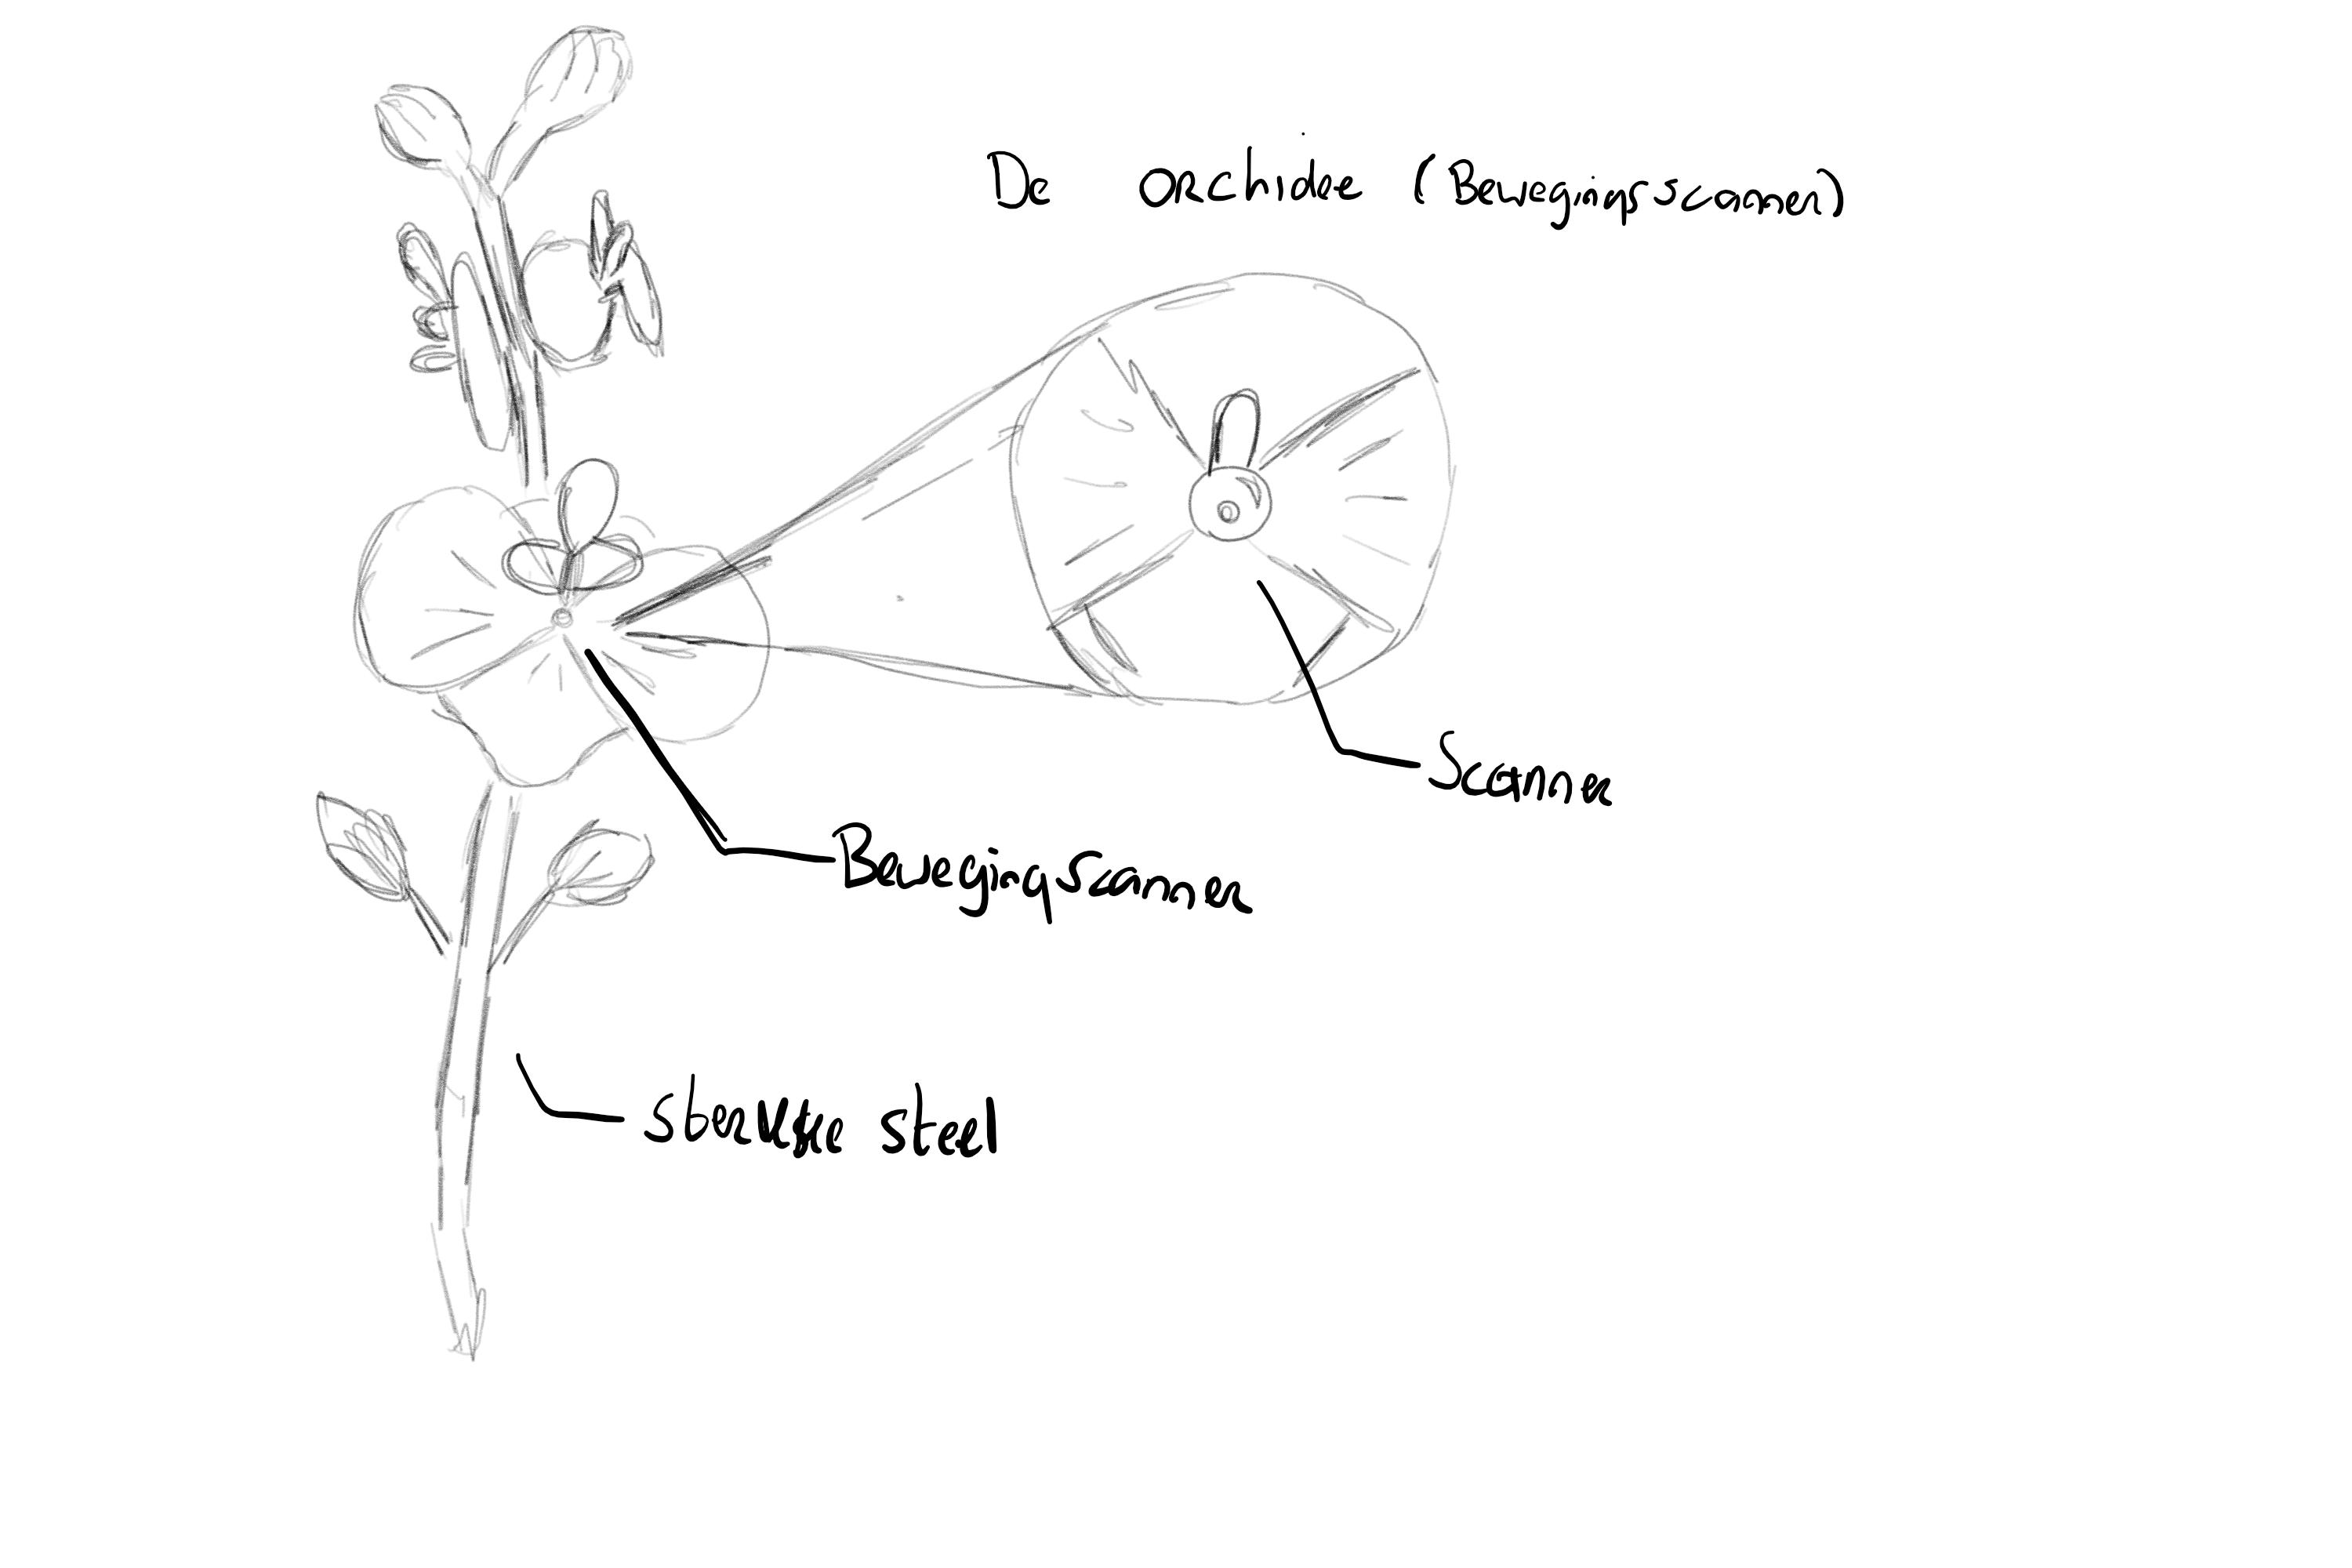 De orchidee (Bewegingsscanner)
Scanner
Bewegingscanner
sterkke steel